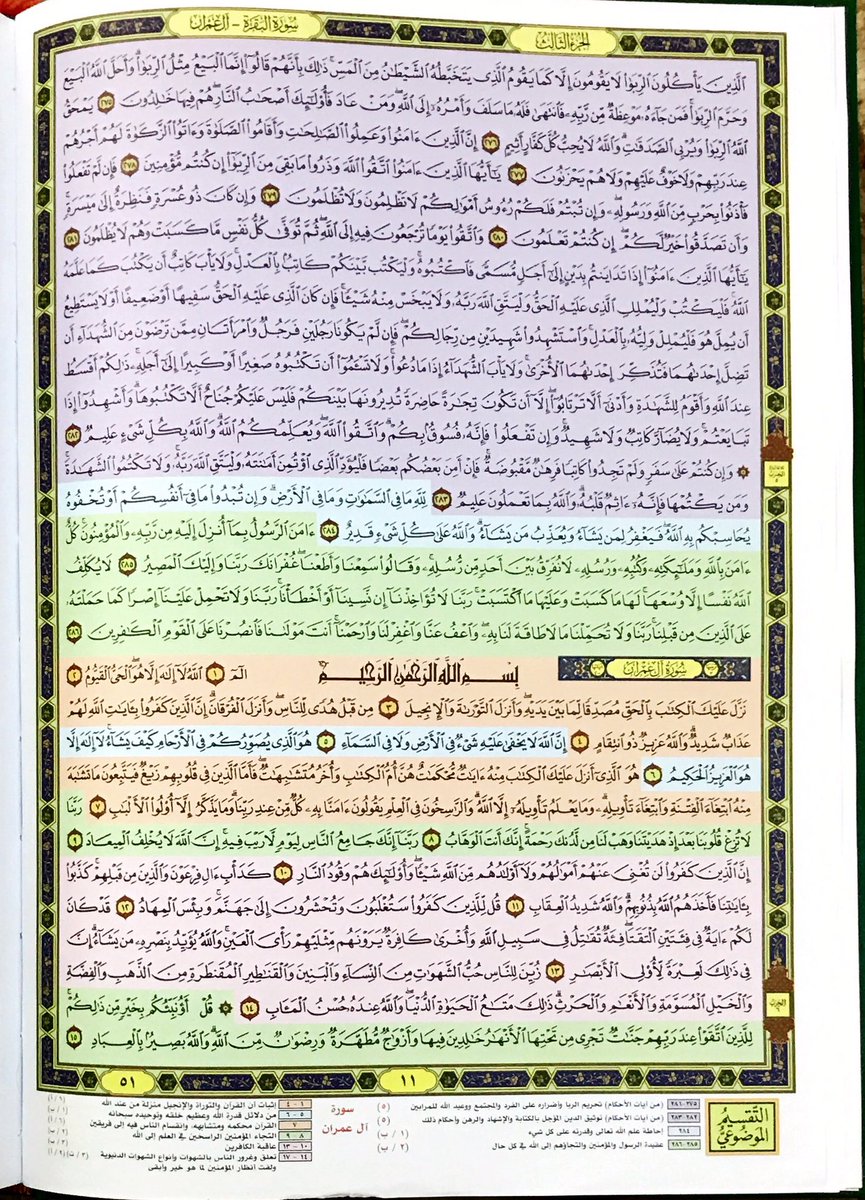 الجزء الثالث
سورة البقرة - آل عمران
الذين يأكلون الربوا لا يقومون إلا كما يقوم الذي يتخبطه الشيطن من المس ذلك بأنهم قالوا إنما البيع مثل الربوا وأحل الله البيع
وحرم الربوا فمن جاءه موعظة من ربه فانتهى فله ما سلف وأمره إلى الله ومن عاد فأولئك أصحب النار هم فيها خلدون ٢٧٥ يمحق
الله الربوا ويربي الصدقت والله لا يحب كل كفار أثيم ٢٧٦ إن الذين ءامنوا وعملوا الصلحت وأقاموا الصلوة وءاتوا الزكوة لهم أجرهم
عند ربهم ولا خوف عليهم ولا هم يحزنون ٢٧٧ يأيها الذين ءامنوا اتقوا الله وذروا ما بقي من الربوا إن كنتم مؤمنين ٢٧٨ فإن لم تفعلوا
فأذنوا بحرب من الله ورسوله وإن تبتم فلكم رءوس أمولكم لا تظلمون ولا تظلمون ٢٧٩ وإن كان ذو عسرة فنظرة إلى ميسرة
وأن تصدقوا خير لكم إن كنتم تعلمون ٢٨٠ واتقوا يوما ترجعون فيه إلى الله ثم توفى كل نفس ما كسبت وهم لا يظلمون ٢٨١
يأيها الذين ءامنوا إذا تداينتم بدين إلى أجل مسمى فاكتبوه وليكتب بينكم كاتب بالعدل ولا يأب كاتب أن يكتب كما علمه
الله فليكتب وليملل الذي عليه الحق وليتق الله ربه ولا يبخس منه شيئا فإن كان الذي عليه الحق سفيها أو ضعيفا أو لا يستطيع
أن يمل هو فليملل وليه بالعدل واستشهدوا شهيدين من رجالكم فإن لم يكونا رجلين فرجل وامرأتان ممن ترضون من الشهداء أن
تضل إحدىهما فتذكر إحدىهما الأخرى ولا يأب الشهداء إذا ما دعوا ولا تسئموا أن تكتبوه صغيرا أو كبيرا إلى أجله ذلكم أقسط
عند الله وأقوم للشهدة وأدنى ألا ترتابوا إلا أن تكون تجرة حاضرة تديرونها بينكم فليس عليكم جناح ألا تكتبوها وأشهدوا إذا
تبايعتم ولا يضار كاتب ولا شهيد وإن تفعلوا فإنه فسوق بكم واتقوا الله ويعلمكم الله والله بكل شيء عليم ٢٨٢
۞ وإن كنتم على سفر ولم تجدوا كاتبا فرهن مقبوضة فإن أمن بعضكم بعضا فليؤد الذي اؤتمن أمنته وليتق الله ربه ولا تكتموا الشهدة
ومن يكتمها فإنه ءاثم قلبه والله بما تعملون عليم ٢٨٣ لله ما في السموت وما في الأرض وإن تبدوا ما في أنفسكم أو تخفوه
يحاسبكم به الله فيغفر لمن يشاء ويعذب من يشاء والله على كل شيء قدير ٢٨٤ ءامن الرسول بما أنزل إليه من ربه والمؤمنون كل
ءامن بالله وملئكته وكتبه ورسله لا نفرق بين أحد من رسله وقالوا سمعنا وأطعنا غفرانك ربنا وإليك المصير ٢٨٥ لا يكلف
الله نفسا إلا وسعها لها ما كسبت وعليها ما اكتسبت ربنا لا تؤاخذنا إن نسينا أو أخطأنا ربنا ولا تحمل علينا إصرا كما حملته
على الذين من قبلنا ربنا ولا تحملنا ما لا طاقة لنا به واعف عنا واغفر لنا وارحمنا أنت مولىنا فانصرنا على القوم الكفرين ٢٨٦
سورة آل عمران بسم الله الرحمن الرحيم الم ١ الله لا إله إلا هو الحي القيوم ٢
نزل عليك الكتب بالحق مصدقا لما بين يديه وأنزل التورىة والإنجيل ٣ من قبل هدى للناس وأنزل الفرقان إن الذين كفروا بءايت الله لهم
عذاب شديد والله عزيز ذو انتقام ٤ إن الله لا يخفى عليه شيء في الأرض ولا في السماء ٥ هو الذي يصوركم في الأرحام كيف يشاء لا إله إلا
هو العزيز الحكيم ٦ هو الذي أنزل عليك الكتب منه ءايت محكمت هن أم الكتب وأخر متشبهت فأما الذين في قلوبهم زيغ فيتبعون ما تشبه
منه ابتغاء الفتنة وابتغاء تأويله وما يعلم تأويله إلا الله والرسخون في العلم يقولون ءامنا به كل من عند ربنا وما يذكر إلا أولوا الألبب ٧ ربنا
لا تزغ قلوبنا بعد إذ هديتنا وهب لنا من لدنك رحمة إنك أنت الوهاب ٨ ربنا إنك جامع الناس ليوم لا ريب فيه إن الله لا يخلف الميعاد ٩
إن الذين كفروا لن تغني عنهم أمولهم ولا أولدهم من الله شيئا وأولئك هم وقود النار ١٠ كدأب ءال فرعون والذين من قبلهم كذبوا
بءايتنا فأخذهم الله بذنوبهم والله شديد العقاب ١١ قل للذين كفروا ستغلبون وتحشرون إلى جهنم وبئس المهاد ١٢ قد كان
لكم ءاية في فئتين التقتا فئة تقتل في سبيل الله وأخرى كافرة يرونهم مثليهم رأي العين والله يؤيد بنصره من يشاء إن
في ذلك لعبرة لأولي الأبصر ١٣ زين للناس حب الشهوت من النساء والبنين والقنطير المقنطرة من الذهب والفضة
والخيل المسومة والأنعم والحرث ذلك متع الحيوة الدنيا والله عنده حسن المءاب ١٤ ۞ قل أؤنبئكم بخير من ذلكم
للذين اتقوا عند ربهم جنت تجري من تحتها الأنهر خلدين فيها وأزوج مطهرة ورضون من الله والله بصير بالعباد ١٥
١١
٥١
التقسيم الموضوعي
٢٧٥-٢٨١ (من آيات الأحكام) تحريم الربا وأضراره على الفرد والمجتمع ووعيد الله للمرابين (٥)
٢٨٢-٢٨٣ (من آيات الأحكام) توثيق الدين المؤجل بالكتابة والإشهاد والرهن وأحكام ذلك (٥)
٢٨٤ إحاطة علم الله تعالى وقدرته على كل شيء (١/ب)
٢٨٥-٢٨٦ عقيدة الرسول والمؤمنين والتجاؤهم إلى الله في كل حال (٢/ب)
سورة
آل عمران
١-٤ إثبات أن القرآن والتوراة والإنجيل منزلة من عند الله (١/أ)
٥-٦ من دلائل قدرة الله وعظيم خلقه وتوحيده سبحانه (١/ب)
٧ القرآن محكمه ومتشابهه، وانقسام الناس فيه إلى فريقين
٨-٩ التجاء المؤمنين الراسخين في العلم إلى الله (٢/ب)
١٠-١٣ عاقبة الكافرين (٣/ب)
١٤-١٧ تعلق وغرور الناس بالشهوات وأنواع الشهوات الدنيوية
ولفت أنظار المؤمنين لما هو خير وأبقى